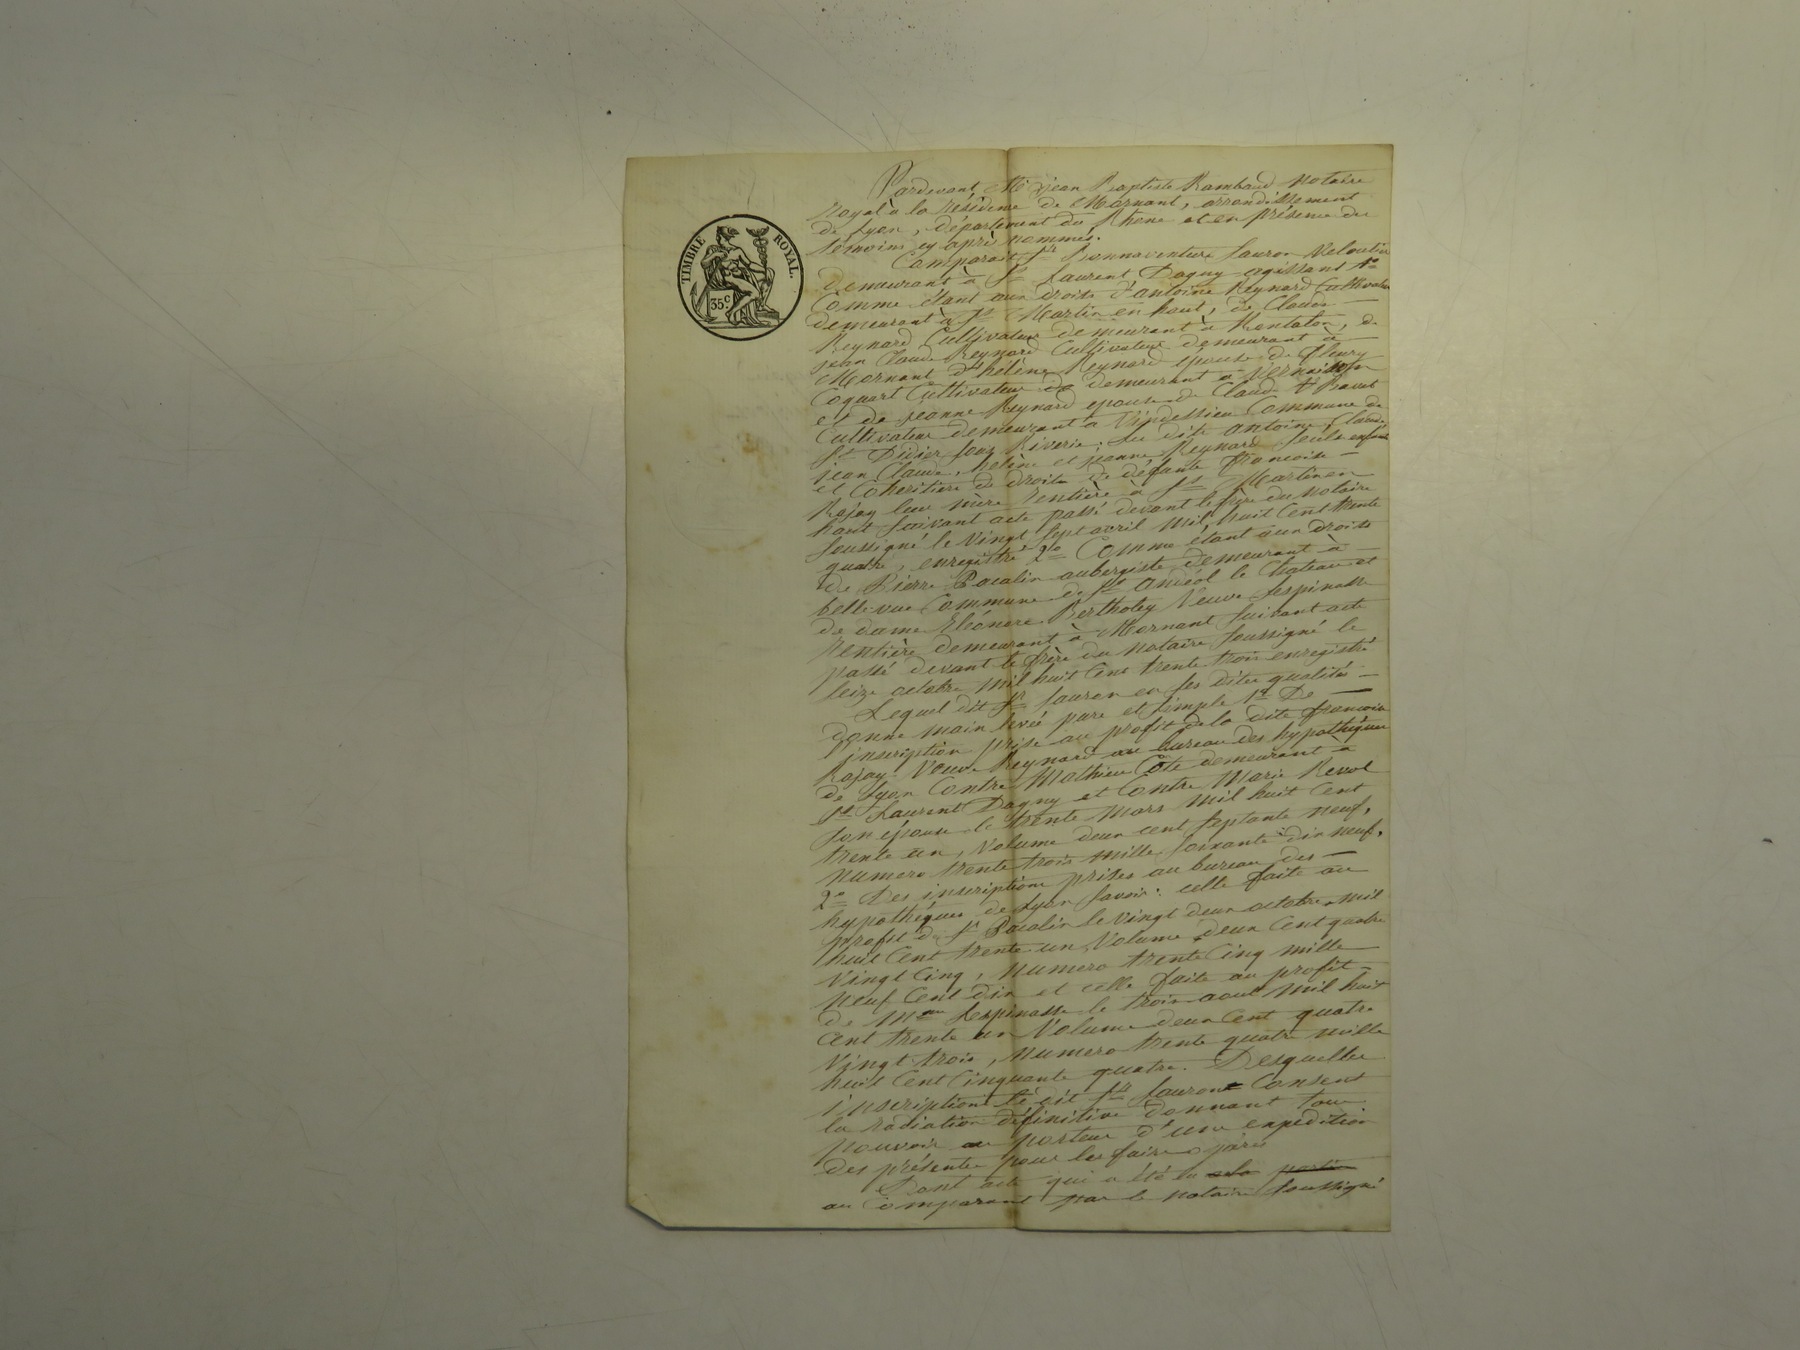 TIMBRE ROYAL.
35.C
Pardevant Me jean Baptiste Rambaud Notaire
royal à la résidence de Mornant, arrondissement
de Lyon, département du Rhone et en présence des
témoins cy après nommés.
Comparait Sr Bonnaventure Lauron Veloutier
demeurant à St Laurent Dagny agissant 1º
Comme étant aux droits d'antoine Reynard Cultivateur
demeurant à St Martin en haut, de Claude —
Reynard Cultivateur demeurant à Rontalon, de
jean Claude Reynard Cultivateur demeurant à
Mornant d'hélène Reynard épouse de fleury
Coquart Cultivateur demeurant à Vernaison
et de jeanne Reynard épouse de Claude
Cultivateur demeurant à Vindessieu Commune de
St Didier sous Riverie; les dits antoine, Claude,
jean Claude, hélène et jeanne Reynard seuls enfants
et Cohéritiers de droits de défunte françoise —
Rajay leur mère rentière à St Martin en
haut suivant acte passé devant le frère du Notaire
soussigné le vingt sept avril mil huit Cent trente
quatre, enregistré 2º Comme étant aux droits
de Pierre Pacalin aubergiste demeurant à —
belle-vue Commune de St andéol le Chateau et
de dame Eléonore Bertholey Veuve Lespinasse
rentière demeurant à Mornant suivant acte
passé devant le frère du Notaire soussigné le
seize octobre mil huit Cent trente trois enregistré
Lequel dit Sr Lauron en ses dites qualités —
donne main levée pure et simple 1º De —
l'inscription prise au profit de la dite françoise
Rajay Veuve Reynard au bureau des hypothèques
de Lyon Contre Mathieu Côte demeurant à
St Laurent Dagny et Contre Marie Revol
son épouse le trente Mars mil huit Cent
trente un, Volume deux cent septante neuf,
numero trente trois mille soixante dix neuf,
2º Des inscriptions prises au bureau des —
hypothèques de Lyon savoir: celle faite au
profit de Sr Pacalin le vingt deux octobre mil
huit Cent trente un, Volume deux Cent quatre
Vingt Cinq, Numero trente Cinq mille
neuf Cent dix et celle faite au profit —
de Mme Lespinasse le trois aout mil huit
Cent trente un Volume deux Cent quatre
Vingt trois, Numero trente quatre mille
huit Cent Cinquante quatre. Desquelles
inscriptions le dit Sr Lauron Consent
la radiation définitive donnant tous
pouvoirs au porteur d'une expédition
des présentes pour les faire opérer
Dont acte qui a été lu
au Comparant par le notaire soussigné